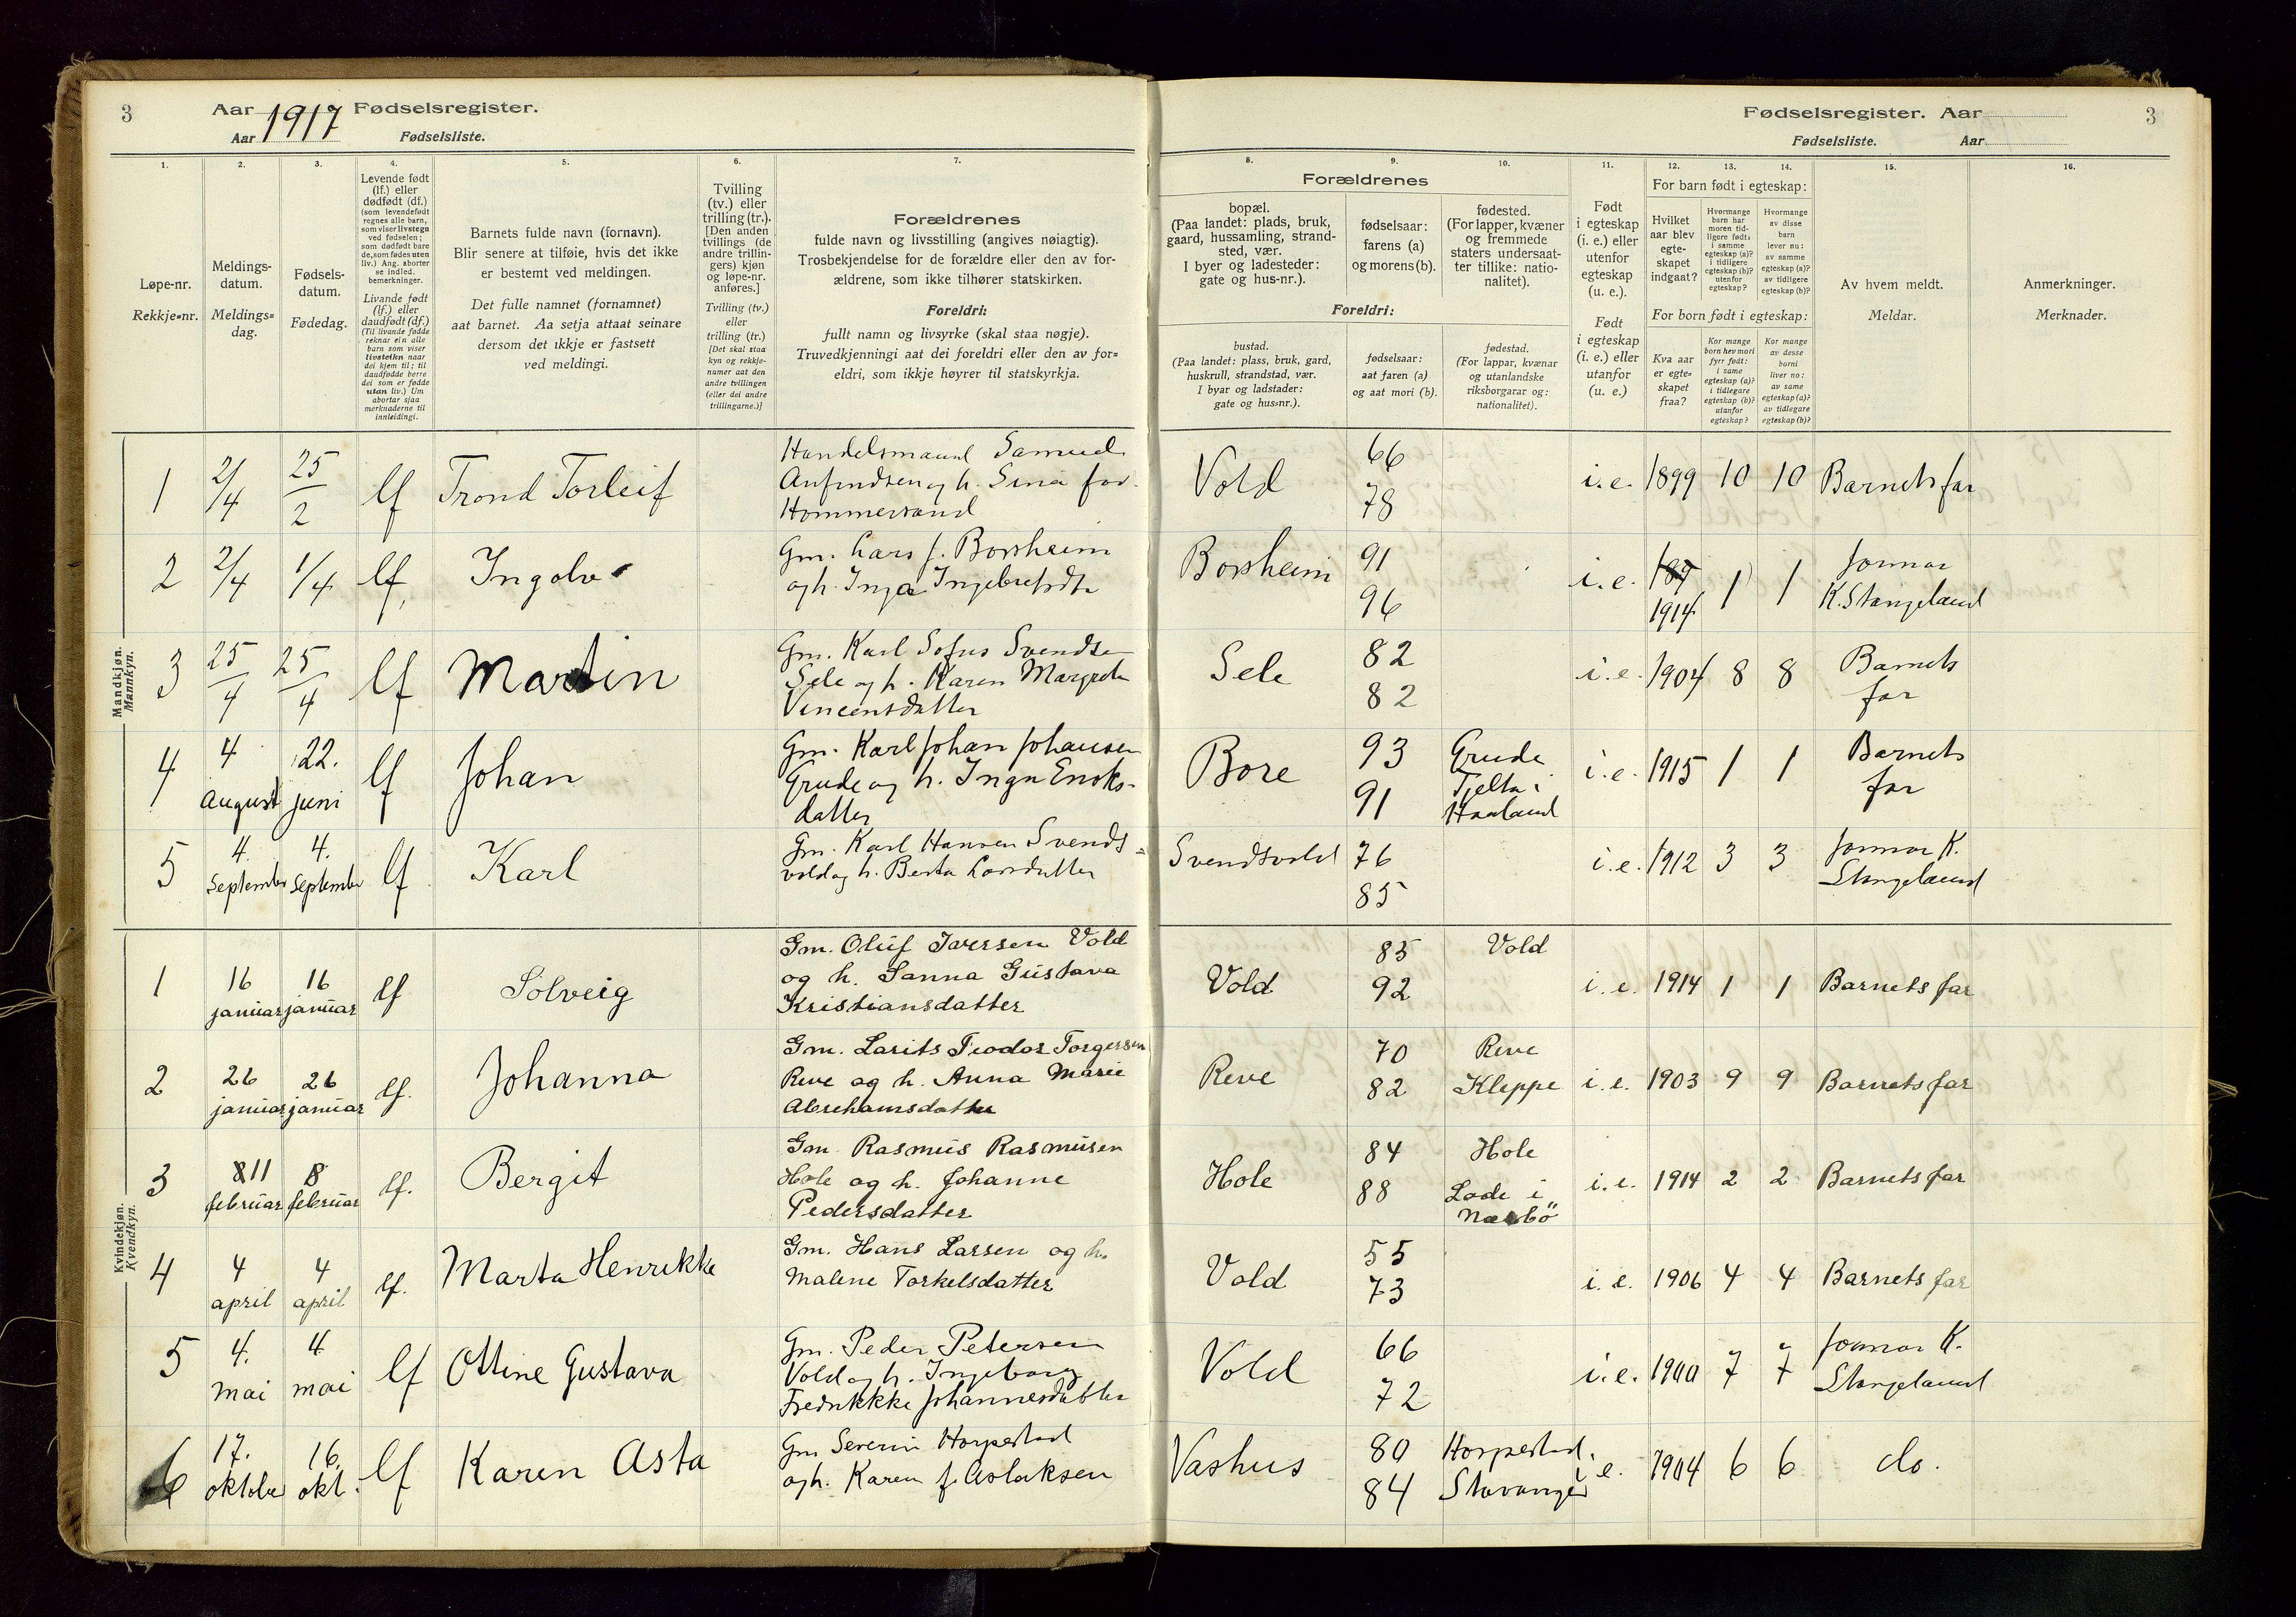 3 Aar 1917 Fødselsregister.
Aar Fødselsliste.
Fødselsregister. Aar 3
Fødselsliste. Aar
1. 2. 3. 4. 5. 6. 7. 8. 9. 10. 11. 12. 13. 14. 15. 16.
Løpe-nr.
Rekkje=nr.
Meldings-
datum.
Meldings=
dag.
Fødsels-
datum.
Fødedag.
Levende født
(lf.) eller
dødfødt (df.)
(som levendefødt
regnes alle barn,
som viser livstegn
ved fødselen;
som dødfødt bare
de, som fødes uten
liv.) Ang. aborter
se indled.
bemerkninger.
Livande født
(lf.) eller
daudfødt (df.)
(Til livande fødde
reknar ein alle
barn som viser
livsteikn naar
dei kjem til; til
daudfødde berre
dei som er fødde
utan liv.) Um
abortar sjaa
merknaderne til
innleidingi.
Barnets fulde navn (fornavn).
Blir senere at tilføie, hvis det ikke
er bestemt ved meldingen.
Det fulle namnet (fornamnet)
aat barnet. Aa setja attaat seinare
dersom det ikkje er fastsett
ved meldingi.
Tvilling
(tv.) eller
trilling (tr.).
[Den anden
tvillings (de
andre trillin-
gers) kjøn
og løpe-nr.
anføres.]
Tvilling (tv.)
eller
trilling (tr.)
[Det skal staa
kyn og rekkje-
numer aat den
andre tvillingen
(eller dei andre
trillingarne.)]
Forældrenes
fulde navn og livsstilling (angives nøiagtig).
Trosbekjendelse for de forældre eller den av for-
ældrene, som ikke tilhører statskirken.
Foreldri:
fullt namn og livsyrke (skal staa nøgje).
Truvedkjenningi aat dei foreldri eller den av for=
eldri, som ikkje høyrer til statskyrkja.
Forældrenes
bopæl.
(Paa landet: plads, bruk,
gaard, hussamling, strand-
sted, vær.
I byer og ladesteder:
gate og hus-nr.).
fødselsaar:
farens (a)
og morens (b).
fødested.
(For lapper, kvæner
og fremmede
staters undersaat-
ter tillike: natio-
nalitet).
Foreldri:
bustad.
(Paa landet: plass, bruk, gard,
huskrull, strandstad, vær.
I byar og ladstader:
gate og hus=nr.).
fødselsaar:
aat faren (a)
og aat mori (b).
fødestad.
(For lappar, kvænar
og utanlandske
riksborgarar og:
nationalitet).
Født
i egteskap
(i. e.) eller
utenfor
egteskap
(u. e.).
Født
i egteskap
(i. e.) eller
utanfor
(u. e.)
For barn født i egteskap:
Hvilket
aar blev
egte-
skapet
indgaat?
Hvormange
barn har
moren tid-
ligere født:
i samme
egteskap (a)?
i tidligere
egteskap (b)?
utenfor
egteskap?
Hvormange
av disse
barn
lever nu:
av samme
egteskap (a)?
av tidligere
egteskap (b)?
For born født i egteskap:
Kva aar
er egte=
skapet
fraa?
Kor mange
born hev mori
fyrr født:
i same
egteskap (a)?
i tidlegare
egteskap (b)?
utanfor
egteskap?
Kor mange
av desse
borni
liver no:
av same
egteskap (a)?
av tidlegare
egteskap (b)?
Av hvem meldt.
Meldar.
Anmerkninger.
Merknader.
Mandkjøn.
Mannkyn.
1 2/4 25/2 lf Trond Torleif Handelsmand Samuel
Anfindsen og h. Sina fød.
Hommersand Vold 66 78 i.e. 1899 10 10 Barnets far
2 2/4 1/4 lf. Ingolv Gm. Lars J. Borsheim
og h. Inga Ingebretsdtr Borsheim 91 96 i.e. 1914 1 1 Jormor
K. Stangeland
3 25/4 25/4 lf Martin Gm. Karl Sofus Svendsen
Sele og h. Karen Margrete
Vincentsdatter Sele 82 82 i.e. 1904 8 8 Barnets
far
4 4 August 22. juni lf Johan Gm. Karl Johan Johansen
Grude og h. Inga Enoks-
datter Bore 93 91 Grude
Tjelta i
Haaland i.e. 1915 1 1 Barnets
far
5 4. September 4. September lf Karl Gm. Karl Hansen Svends=
vold og h. Berta Larsdatter Svendsvold 76 85 i.e. 1912 3 3 Jormor K.
Stangeland
Kvindekjøn.
Kvendkyn.
1 16 januar 16 januar lf Solveig Gm. Oluf Iversen Vold
og h. Sanna Gustava
Kristiansdatter Vold 85 92 Vold i. e. 1914 1 1 Barnets far
2 26 januar 26 januar lf. Johanna Gm. Larits Teodor Torgersen
Reve og h. Anna Marie
Abrehamsdatter Reve 70 82 Reve
Kleppe i. e. 1903 9 9 Barnets far
3 11 februar 8 februar lf. Bergit Gm. Rasmus Rasmusen
Hole og h. Johanne
Pedersdatter Hole 84 88 Hole
Lode i
Nærbö i. e. 1914 2 2 Barnets far
4 4 april 4 april lf. Marta Henrikke Gm. Hans Larsen og h.
Malene Torkelsdatter Vold 55 73 i. e. 1906 4 4 Barnets far
5 4. mai 4 mai lf Ottine Gustava Gm. Peder Petersen
Vold og h. Ingeborg
Fredrikke Johannesdatter Vold 66 72 i.e. 1900 7 7 Jormor K.
Stangeland
6 17. oktober 16. okt. lf Karen Asta Gm Severin Horpestad
og h. Karen f. Aslaksen Vashus 80 84 Horpestad.
Stavanger i e. 1904 6 6 do.